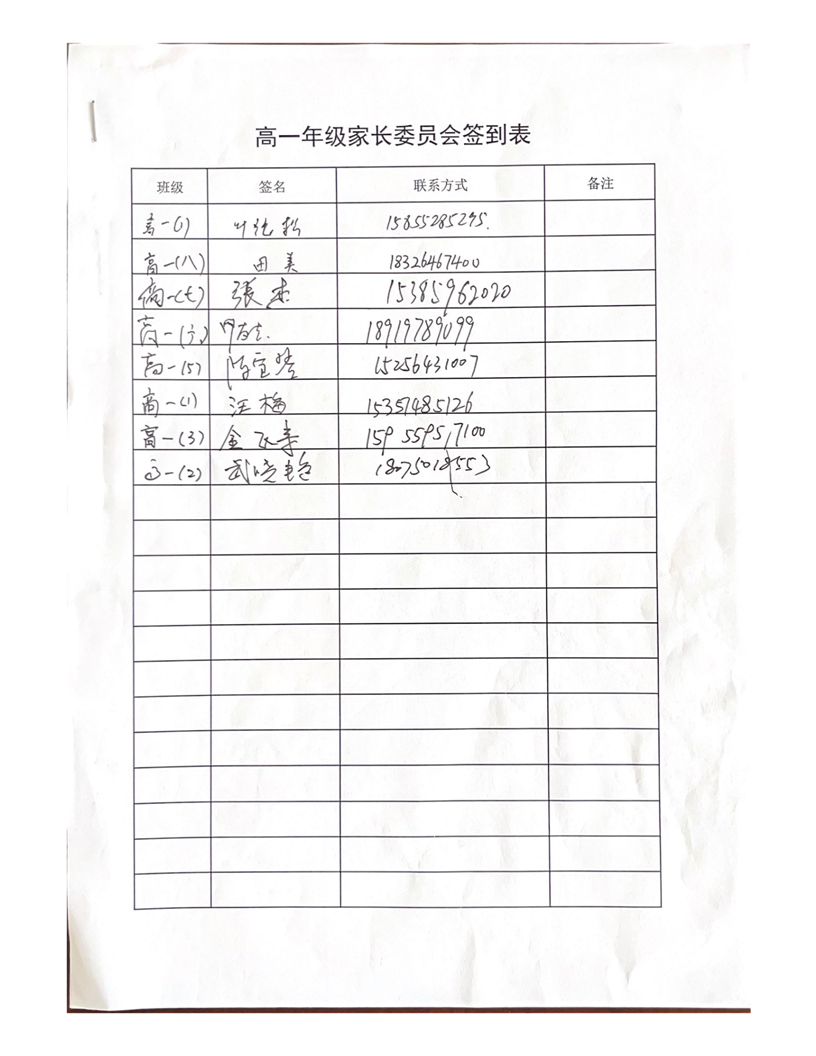 高一年级家长委员会签到表
班级 签名 联系方式 备注
高一(1) 叶 松 15855285295.
高一(八) 田美 18326467400
高一(七) 張杰 15385962020
高一(六) 18919789099
高一(5) 陈宜琴 15256431007
高一(1) 汪梅 15357485126
高一(3) 金 159 5595 7100
高一(2) 武晓艳 18075018553